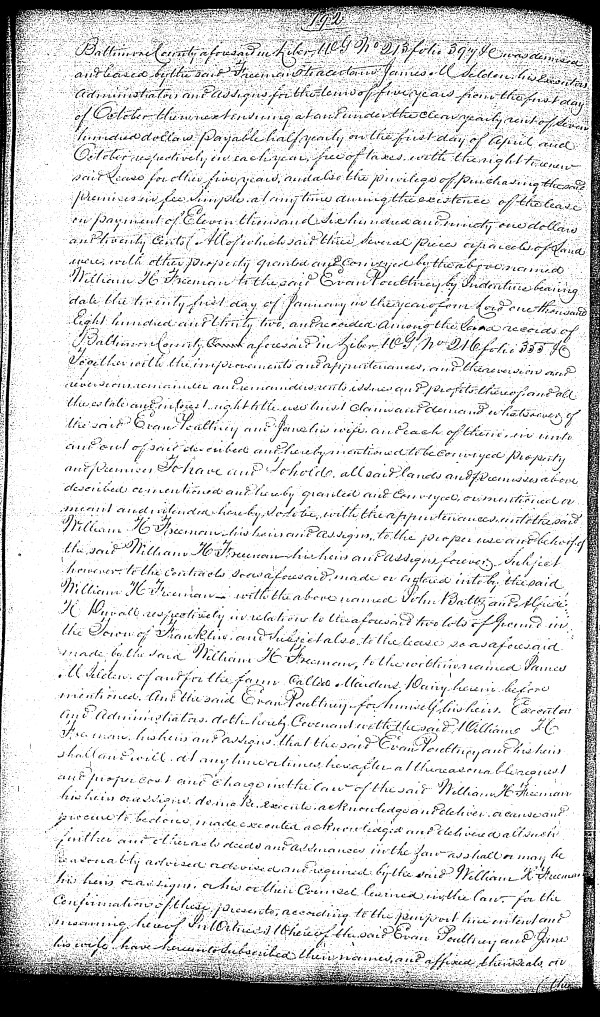 192
Baltimore County aforesaid in Liber WG No 213 folio 397 &c was demised
and leased by the said Freeman to a certain James M Selden his Executors
Administrators and assigns for the term of five years from the first day
of October then next ensuing at and under the clear yearly rent of Seven
hundred dollars payable half yearly on the first day of April and
October respectively in each year, free of taxes, with the right to renew
said Lease for other five years, and also the privilege of purchasing the said
premises in fee simple at any time during the existence of the lease
on payment of Eleven thousand six hundred and ninety one dollars
and twenty Cents. All of which said three several pieces or parcels of Land
were, with other property granted and Conveyed by the above named
William H Freeman to the said Evan Poultney by Indenture bearing
date the twenty first day of January in the year of our Lord one thousand
Eight hundred and thirty two, and recorded among the land records of
Baltimore County Court aforesaid in Liber WG No 216 folio 355 &c
Together with the improvements and appurtenances, and the reversion and
reversions remainder and remainders rents issues and profits thereof and all
the estate and interest right title use trust claim and demand whatsoever of
the said Evan Poultney and Jane his wife and each of them in unto
and out of said described and hereby mentioned to be conveyed property
and premises To have and To hold all said lands and premises above
described or mentioned and hereby granted and Conveyed, or mentioned or
meant and intended hereby so to be, with the appurtenances, unto the said
William H Freeman his heirs and assigns, to the proper use and behoof of
the said William H Freeman his heirs and assigns forever. Subject
however to the contracts so as aforesaid made or entered into by the said
William H Freeman with the above named John Baltz and
H Duvall respectively in relations to the aforesaid two lots of Ground in
the Town of Franklin and subject also to the lease so as aforesaid
made by the said William H Freeman, to the within named James
M Selden of and for the farm called Maidens Dairy herein before
mentioned. And the said Evan Poultney for himself, his heirs Executors
and Administrators doth hereby Covenant with the said William H
Freeman, his heirs and assigns that the said Evan Poultney and his heirs
shall and will at any time or times hereafter at the reasonable request
and proper cost and charge in the law of the said William H Freeman
his heirs or assigns do make execute acknowledge and deliver or cause and
procure to be done, made executed acknowledged and delivered all such
further and other acts deeds and assurances in the law as shall or may be
reasonably advised or devised and required by the said William H Freeman
his heirs or assigns, or his or their Counsel learned in the law for the
Confirmation of these presents, according to the purport true intent and
meaning hereof In Witness Whereof the said Evan Poultney and Jane
his wife have hereunto subscribed their names, and affixed their seals on